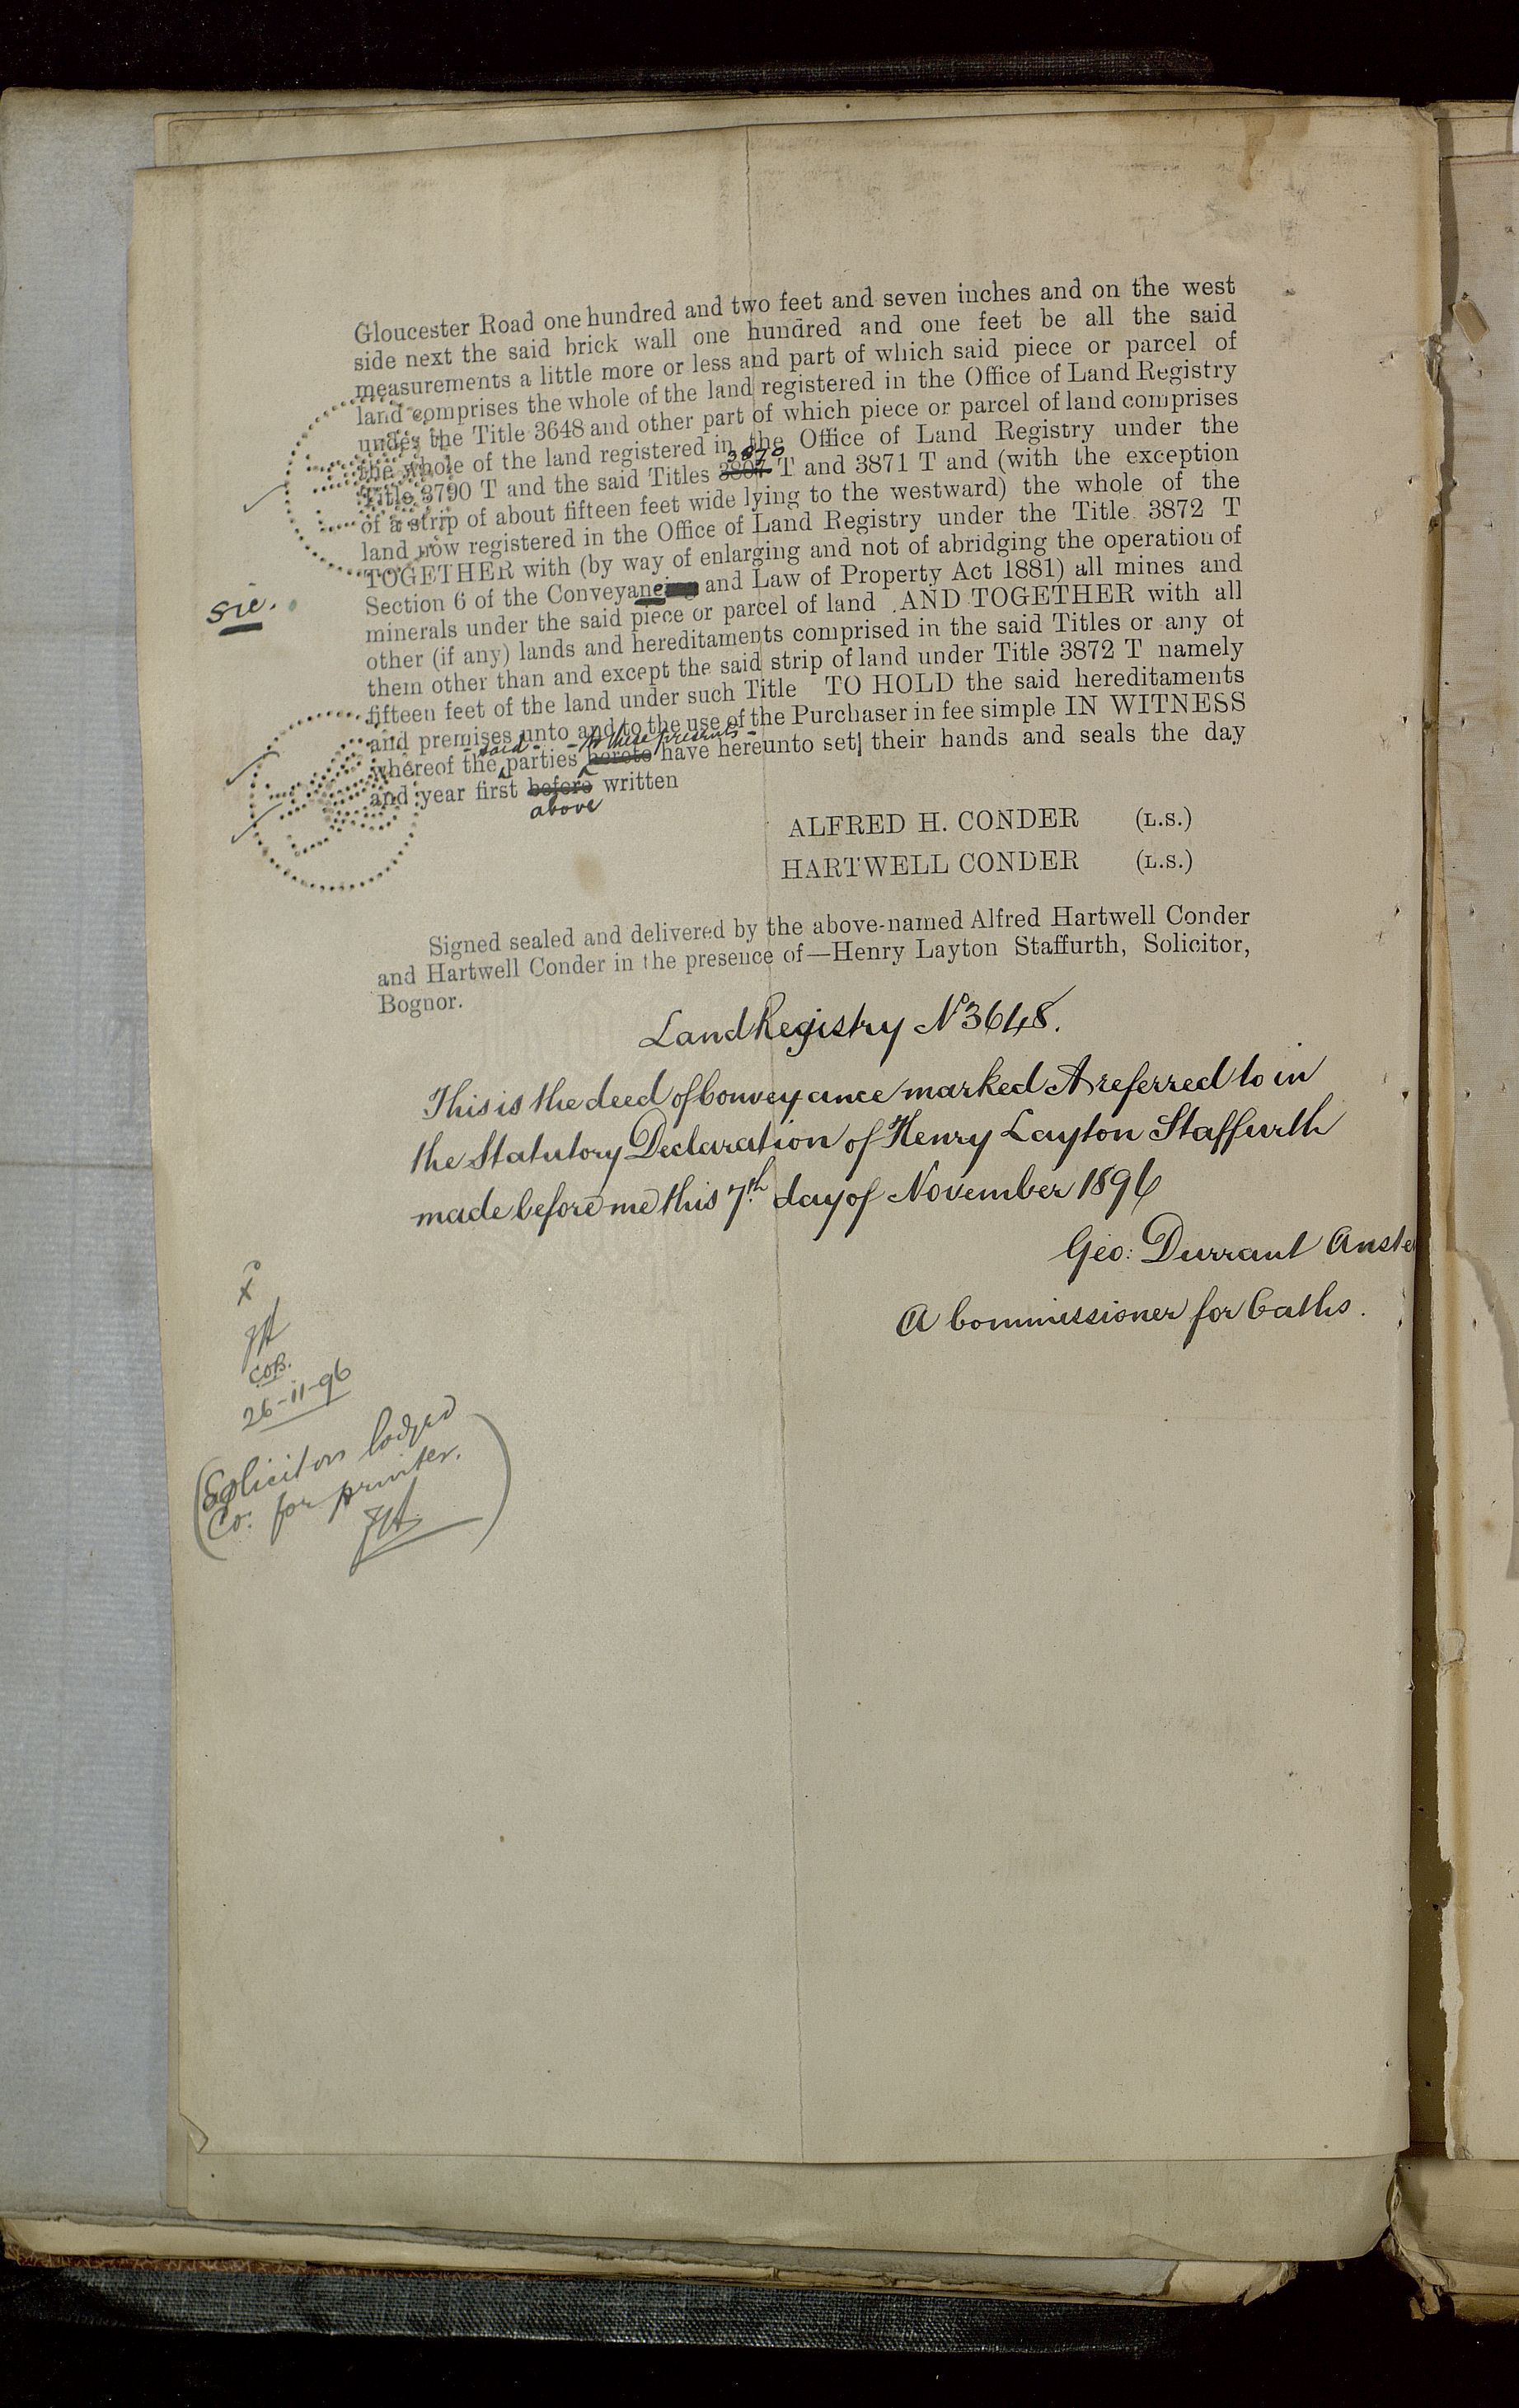 Gloucester Road one hundred and two feet and seven inches and on the west
side next the said brick wall one hundred and one feet be all the said
measurements a little more or less and part of which said piece or parcel of
land comprises the whole of the land registered in the Office of Land Registry
under the Title 3648 and other part of which piece or parcel of land comprises
the whole of the land registered in the Office of Land Registry under the
3870
Title 3790 T and the said Titles 3807 T and 3871 T and (with the exception
of a strip of about fifteen feet wide lying to the westward) the whole of the
land now registered in the Office of Land Registry under the Title 3872 T
TOGETHER with (by way of enlarging and not of abridging the operation of
sic.
Section 6 of the Conveyancing and Law of Property Act 1881) all mines and
minerals under the said piece or parcel of land AND TOGETHER with all
other (if any) lands and hereditaments comprised in the said Titles or any of
them other than and except the said strip of land under Title 3872 T namely
fifteen feet of the land under such Title TO HOLD the said hereditaments
and premises unto and to the use of the Purchaser in fee simple IN WITNESS
- said - - to these presents -
whereof the parties hereto have hereunto set their hands and seals the day
and year first before written
above
ALFRED H. CONDER (L.S.)
HARTWELL CONDER (L.S.)
Signed sealed and delivered by the above-named Alfred Hartwell Conder
and Hartwell Conder in the presence of—Henry Layton Staffurth, Solicitor,
Bognor.
Land Registry No 3648.
This is the deed of Conveyance marked A referred to in
the Statutory Declaration of Henry Layton Staffurth
made before me this 7th day of November 1896
Geo: Durrant Anste
A Commissioner for Oaths.
C.O.B.
26-11-96
(Solicitors lodged
Co: for printer.)